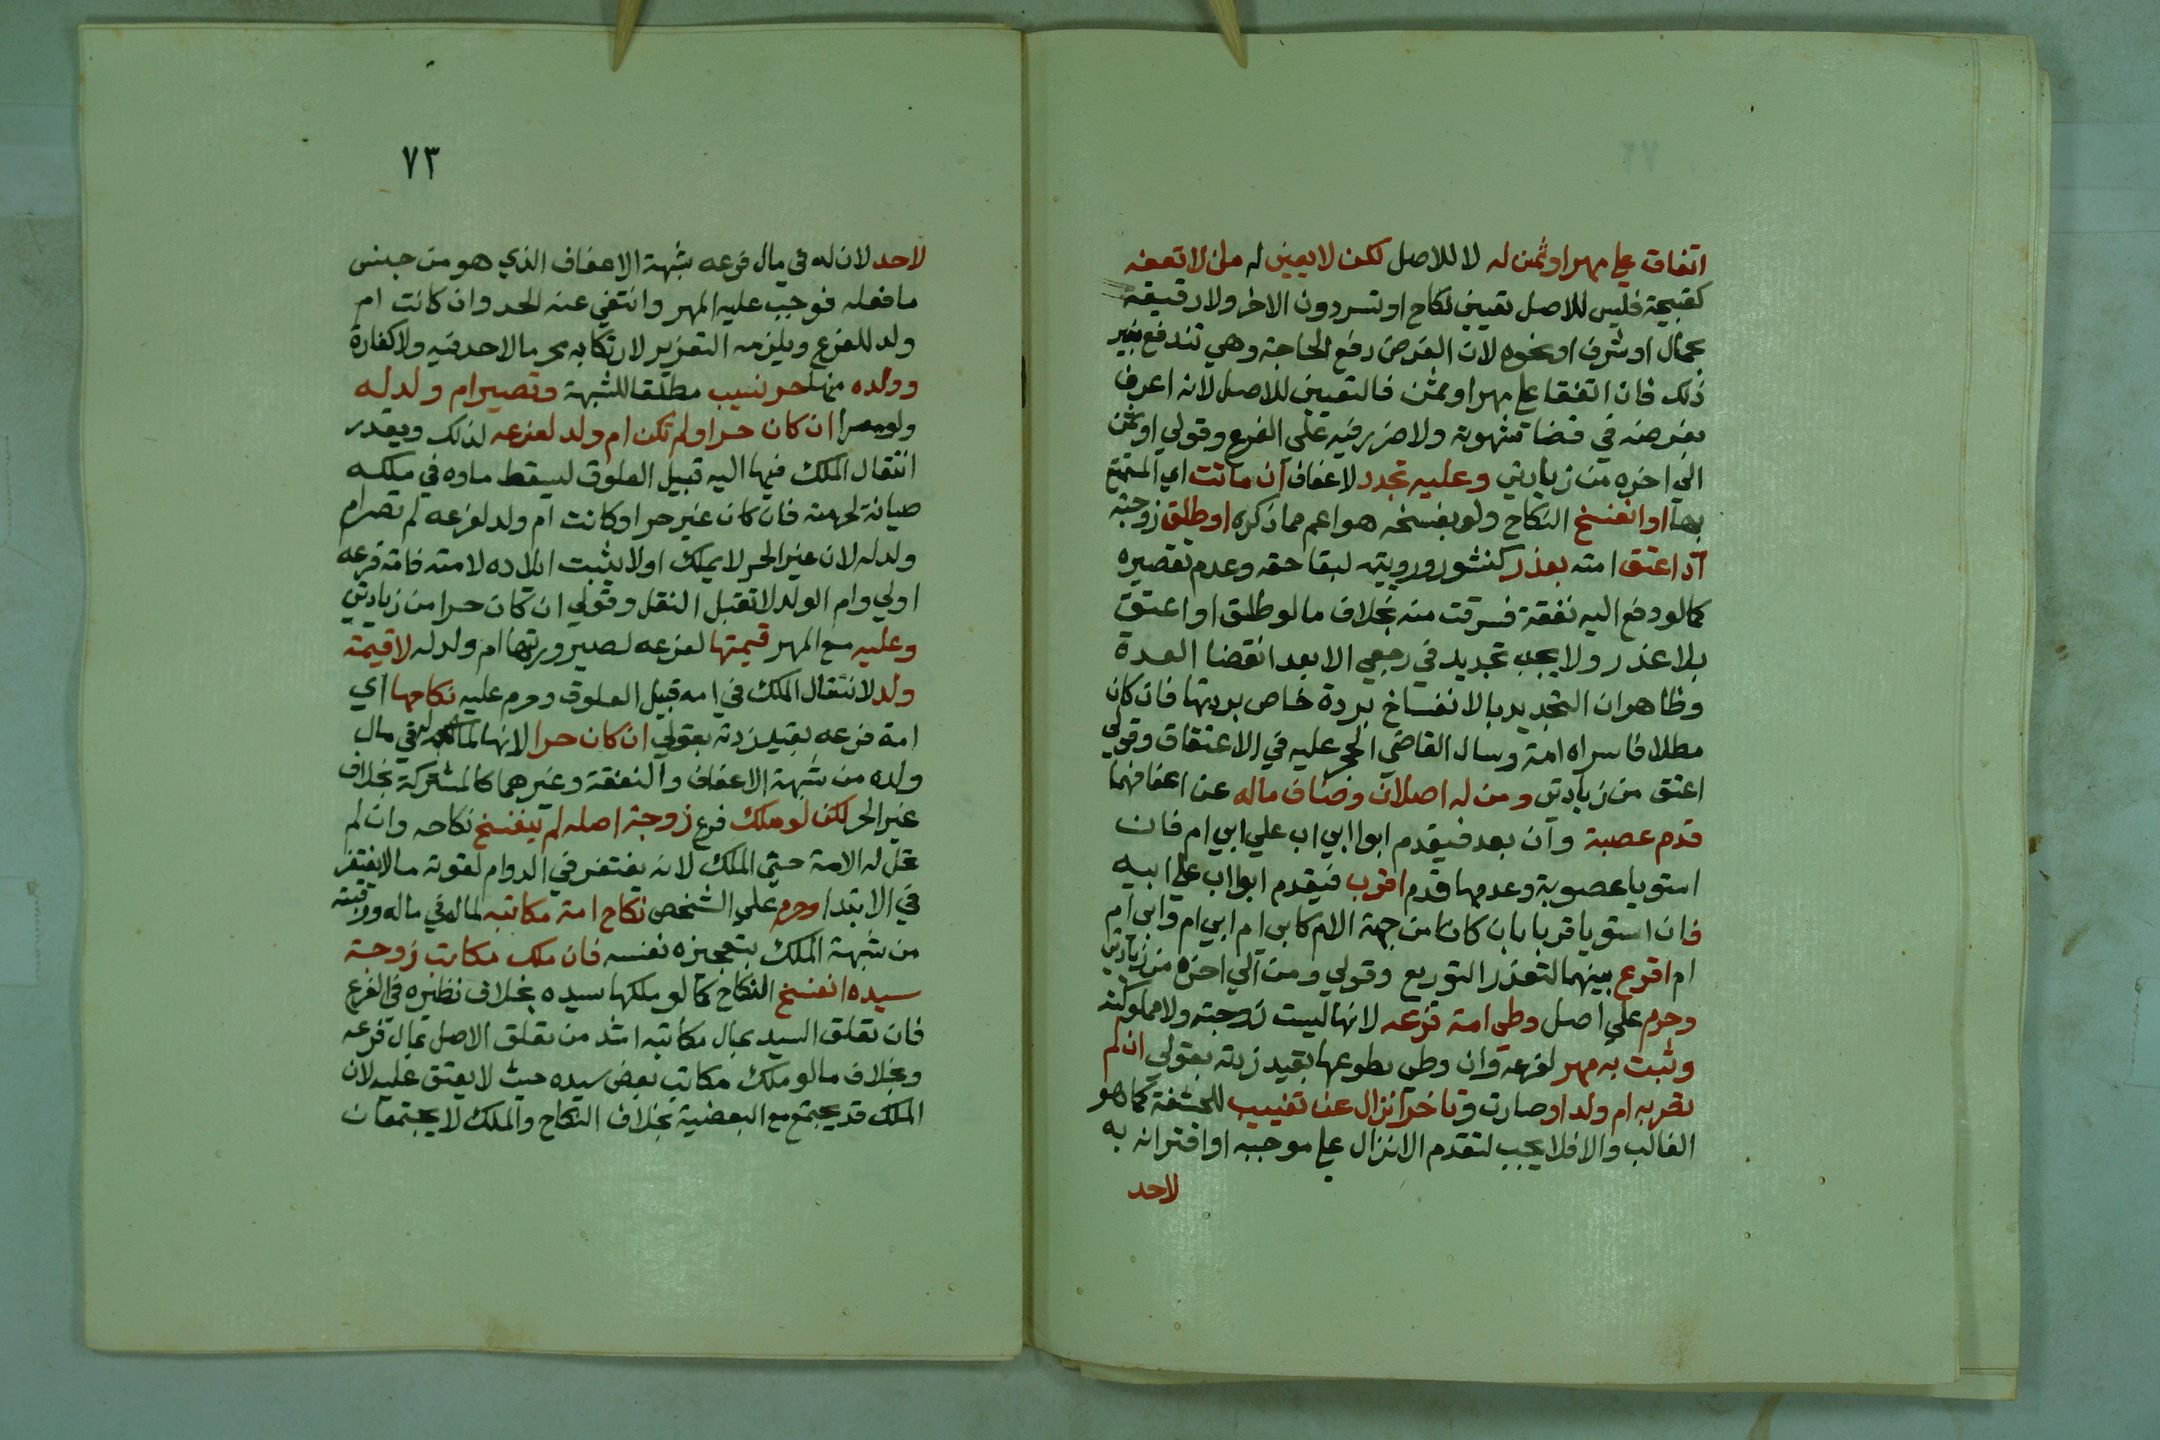 اتفاق علي مهر او ثمن له لا للاصل لكن لا يعين له من لا تعفه
كقبيحة فليس للاصل تعيين نكاح او تسر دون الاخر ولا رقيقة
بجمال او شرف او نحوه لان الغرض دفع الحاجة وهي تندفع بغير
ذلك فان اتفقا علي مهر او ثمن فالتعيين للاصل لانه اعرف
بغرضه في قضا شهوته ولا ضرر فيه علي الفرع وقولي او ثمن
الي اخره من زيادتي وعليه تجدد لاعفاف ان ماتت اي المتمتع
بها او انفسخ النكاح ولو بفسخه هو اعم مما ذكره او طلق زوجته
او اعتق امته بعذر كنشوز وريبة لبقا حقه وعدم تقصيره
كما لو دفع اليه نفقة فسرقت منه بخلاف ما لو طلق او اعتق
بلا عذر ولا يجب تجديد في رجعي الا بعد انقضا العدة
وظاهر ان التجديد بالانفساخ بردة خاص بردتها فان كان
مطلاقا سراه امة وسال القاضي الحجر عليه في الاعتقاق وقولي
اعتق من زيادتي ومن له اصلان وضاق ماله عن اعفافهما
قدم عصبة وان بعد فيقدم ابو ابي اب علي ابي ام فان
استويا عصوبة وعدمها قدم اقرب فيقدم ابو اب علي ابيه
فان استويا قربا بان كانا من جهة الام كابي ام ابي ام وابي ام
ام اقرع بينهما لتعذر التوزيع وقولي ومن الي اخره من زيادتي
وحرم علي اصل وطي امة فرعه لانها ليست زوجته ولا مملوكته
وثبت به مهر لفرعه وان وطي بطوعها بقيد زدته بقولي ان لم
تصر به ام ولد او صارت وتاخر انزال عن تغييب للحشفة كما هو
الغالب والا فلا يجب لتقدم الانزال علي موجبه او اقترانه به
لا حد
٧٣
لا حد لان له في مال فرعه شبهة الاعفاف الذي هو من جنس
ما فعله فوجب عليه المهر وانتفي عنه الحد وان كانت ام
ولد للفرع ويلزمه التعزير لارتكابه محرما لا حد فيه ولا كفارة
وولده منها حر نسيب مطلقا للشبهة وتصير ام ولد له
ولو معسرا ان كان حرا ولم تكن ام ولد لفرعه لذلك ويقدر
انتقال الملك فيها اليه قبيل العلوق ليسقط ماوه في ملكه
صيانة لحرمته فان كان غير حر او كانت ام ولد لفرعه لم تصر ام
ولد له لان غير الحر لا يملك او لا يثبت ايلاده لامته فامة فرعه
اولي وام الولد لا تقبل النقل وقولي ان كان حرا من زيادتي
وعليه مع المهر قيمتها لفرعه لصيرورتها ام ولد له لا قيمة
ولد لانتقال الملك في امه قبيل العلوق وحرم عليه نكاحها اي
امة فرعه بقيد زدته بقولي ان كان حرا لانها لما له في مال
ولده من شبهة الاعفاف والنفقة وغيرهما كالمشتركة بخلاف
غير الحر لكن لو ملك فرع زوجة اصله لم ينفسخ نكاحه وان لم
تحل له الامة حين الملك لانه يغتفر في الدوام لقوته ما لا يغتفر
في الابتدا وحرم علي الشخص نكاح امة مكاتبه لما له في ماله ورقبته
من شبهة الملك بتعجيزه نفسه فان ملك مكاتب زوجة
سيده انفسخ النكاح كما لو ملكها سيده بخلاف نظيره في الفرع
فان تعلق السيد بمال مكاتبه اشد من تعلق الاصل بمال فرعه
وبخلاف ما لو ملك مكاتب بعض سيده حيث لا يعتق عليه لان
الملك قد يجتمع مع البعضية بخلاف النكاح والملك لا يجتمعان